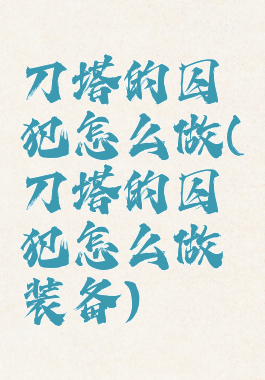 刀塔的囚
犯怎么做(
刀塔的囚
犯怎么做
装备)